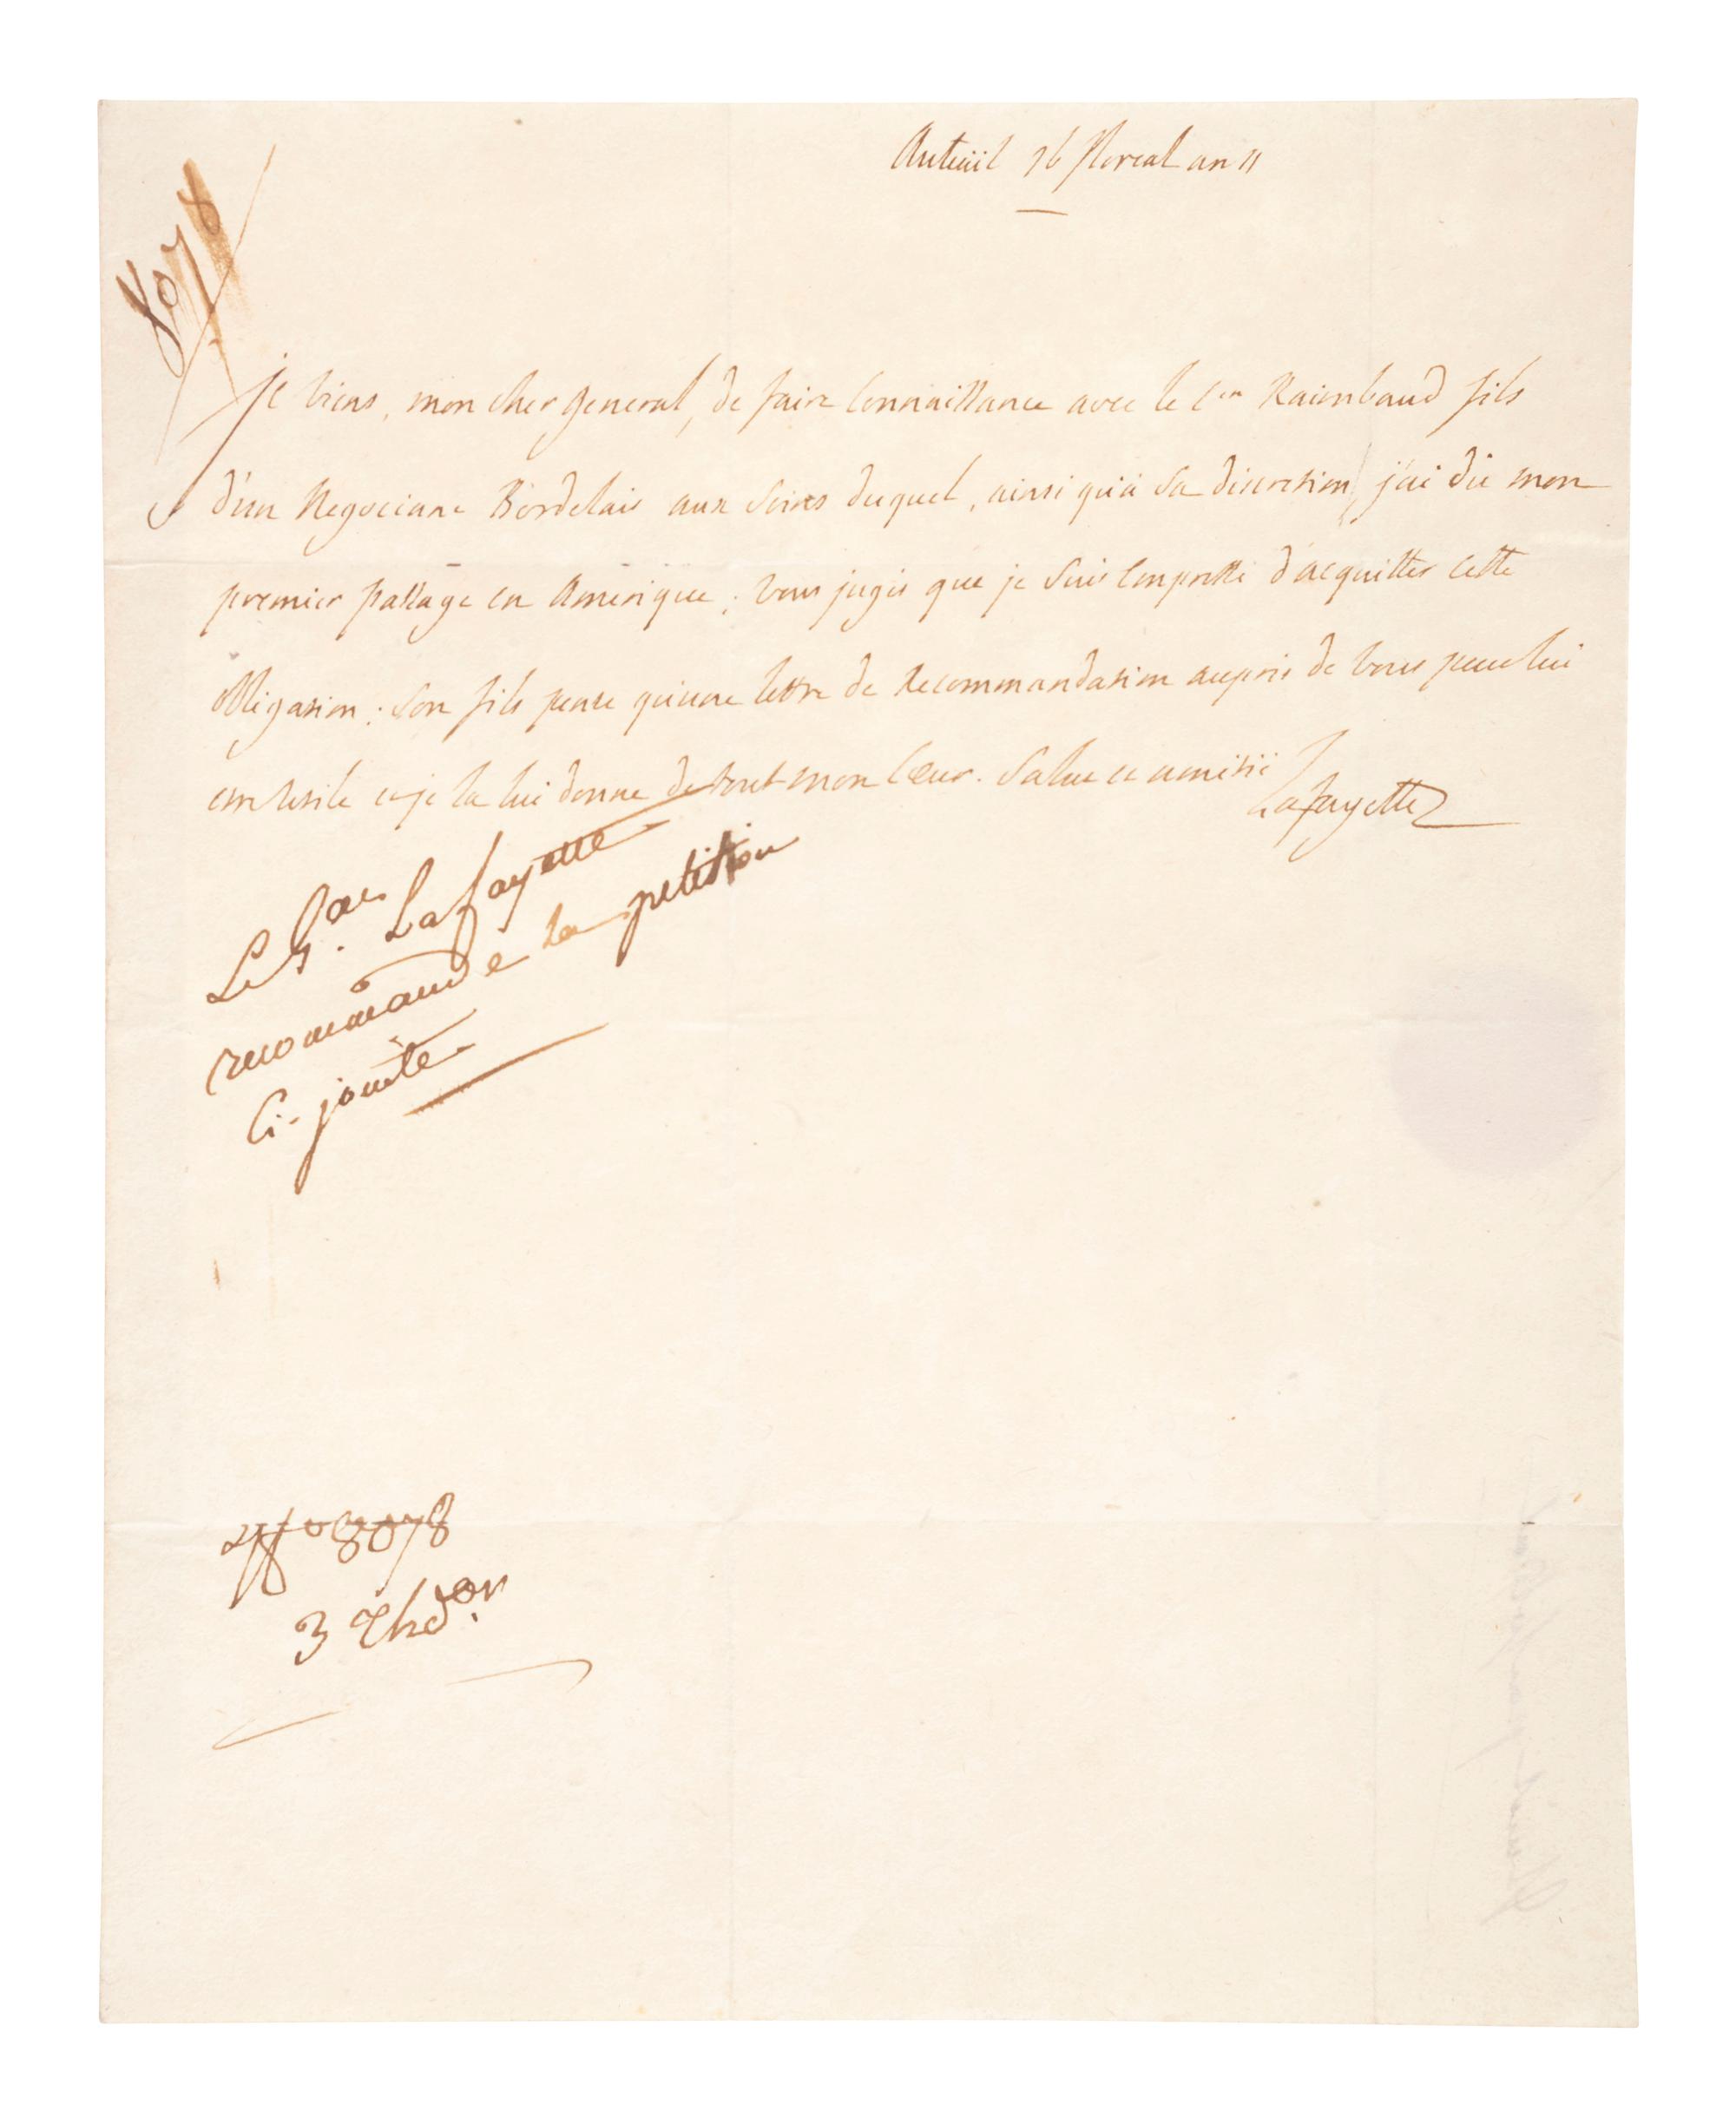 Auteuil 16 floreal an 11
8078
Je viens, mon cher general, de faire connaissance avec le Cen Raimbaud fils
d'un Negociant Bordelais aux soins duquel, ainsi qu'à sa discretion, j'ai dû mon
premier passage en Amérique; vous jugés que je suis empressé d'acquitter cette
obligation; son fils pense qu'une lettre de recommandation auprès de vous peut lui
etre utile et je la lui donne de tout mon coeur. Salut et amitié
Lafayette
Le Gal Lafayette
recommande la petition
Ci-jointe
8078
3 Thdor.